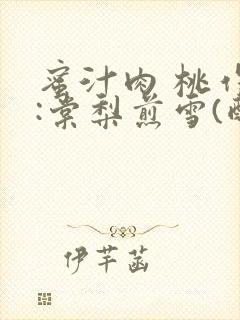 蜜汁肉桃作
:棠梨煎雪(酥
伊芊菡